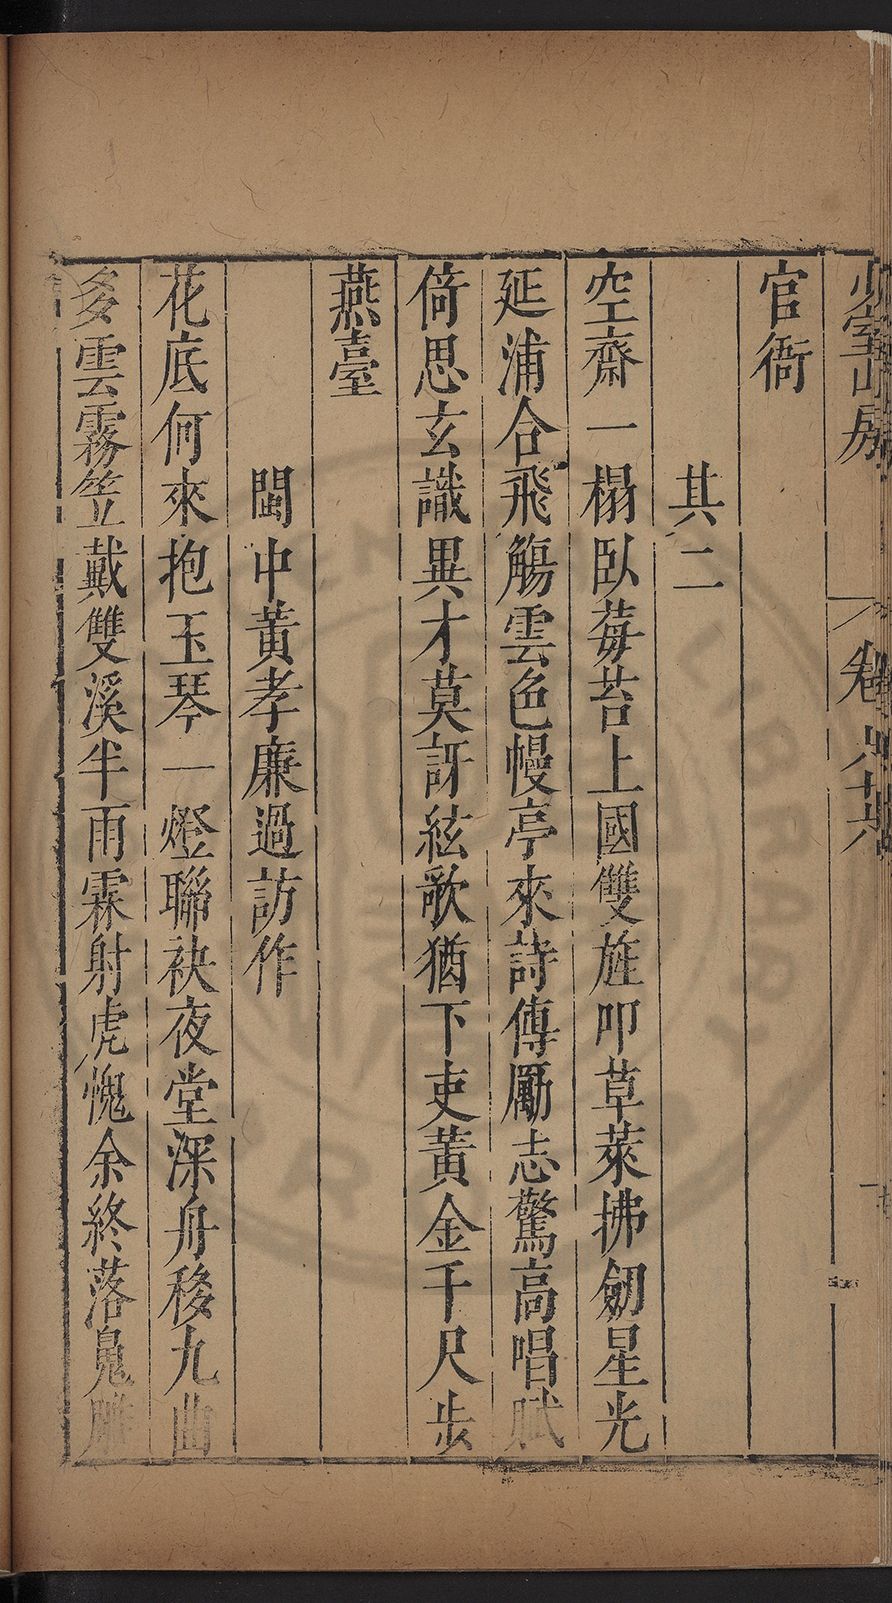 少室山房 卷六十六
官衙
其二
空齋一榻臥莓苔上國雙旌叩草萊拂劒星光
延浦合飛觴雲色幔亭來詩傳勵志驚高唱賦
倚思玄識異才莫訝絃歌猶下吏黃金千尺步
燕臺
閩中黃孝廉過訪作
花底何來抱玉琴一燈聯袂夜堂深舟移九曲
多雲霧笠戴雙溪半雨霖射虎愧余終落鳧雕